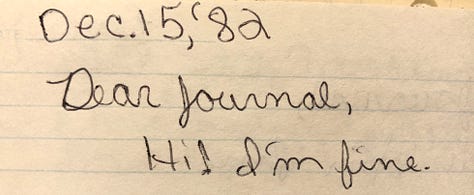 Dec. 15, '82
Dear Journal,
Hi! I'm fine.